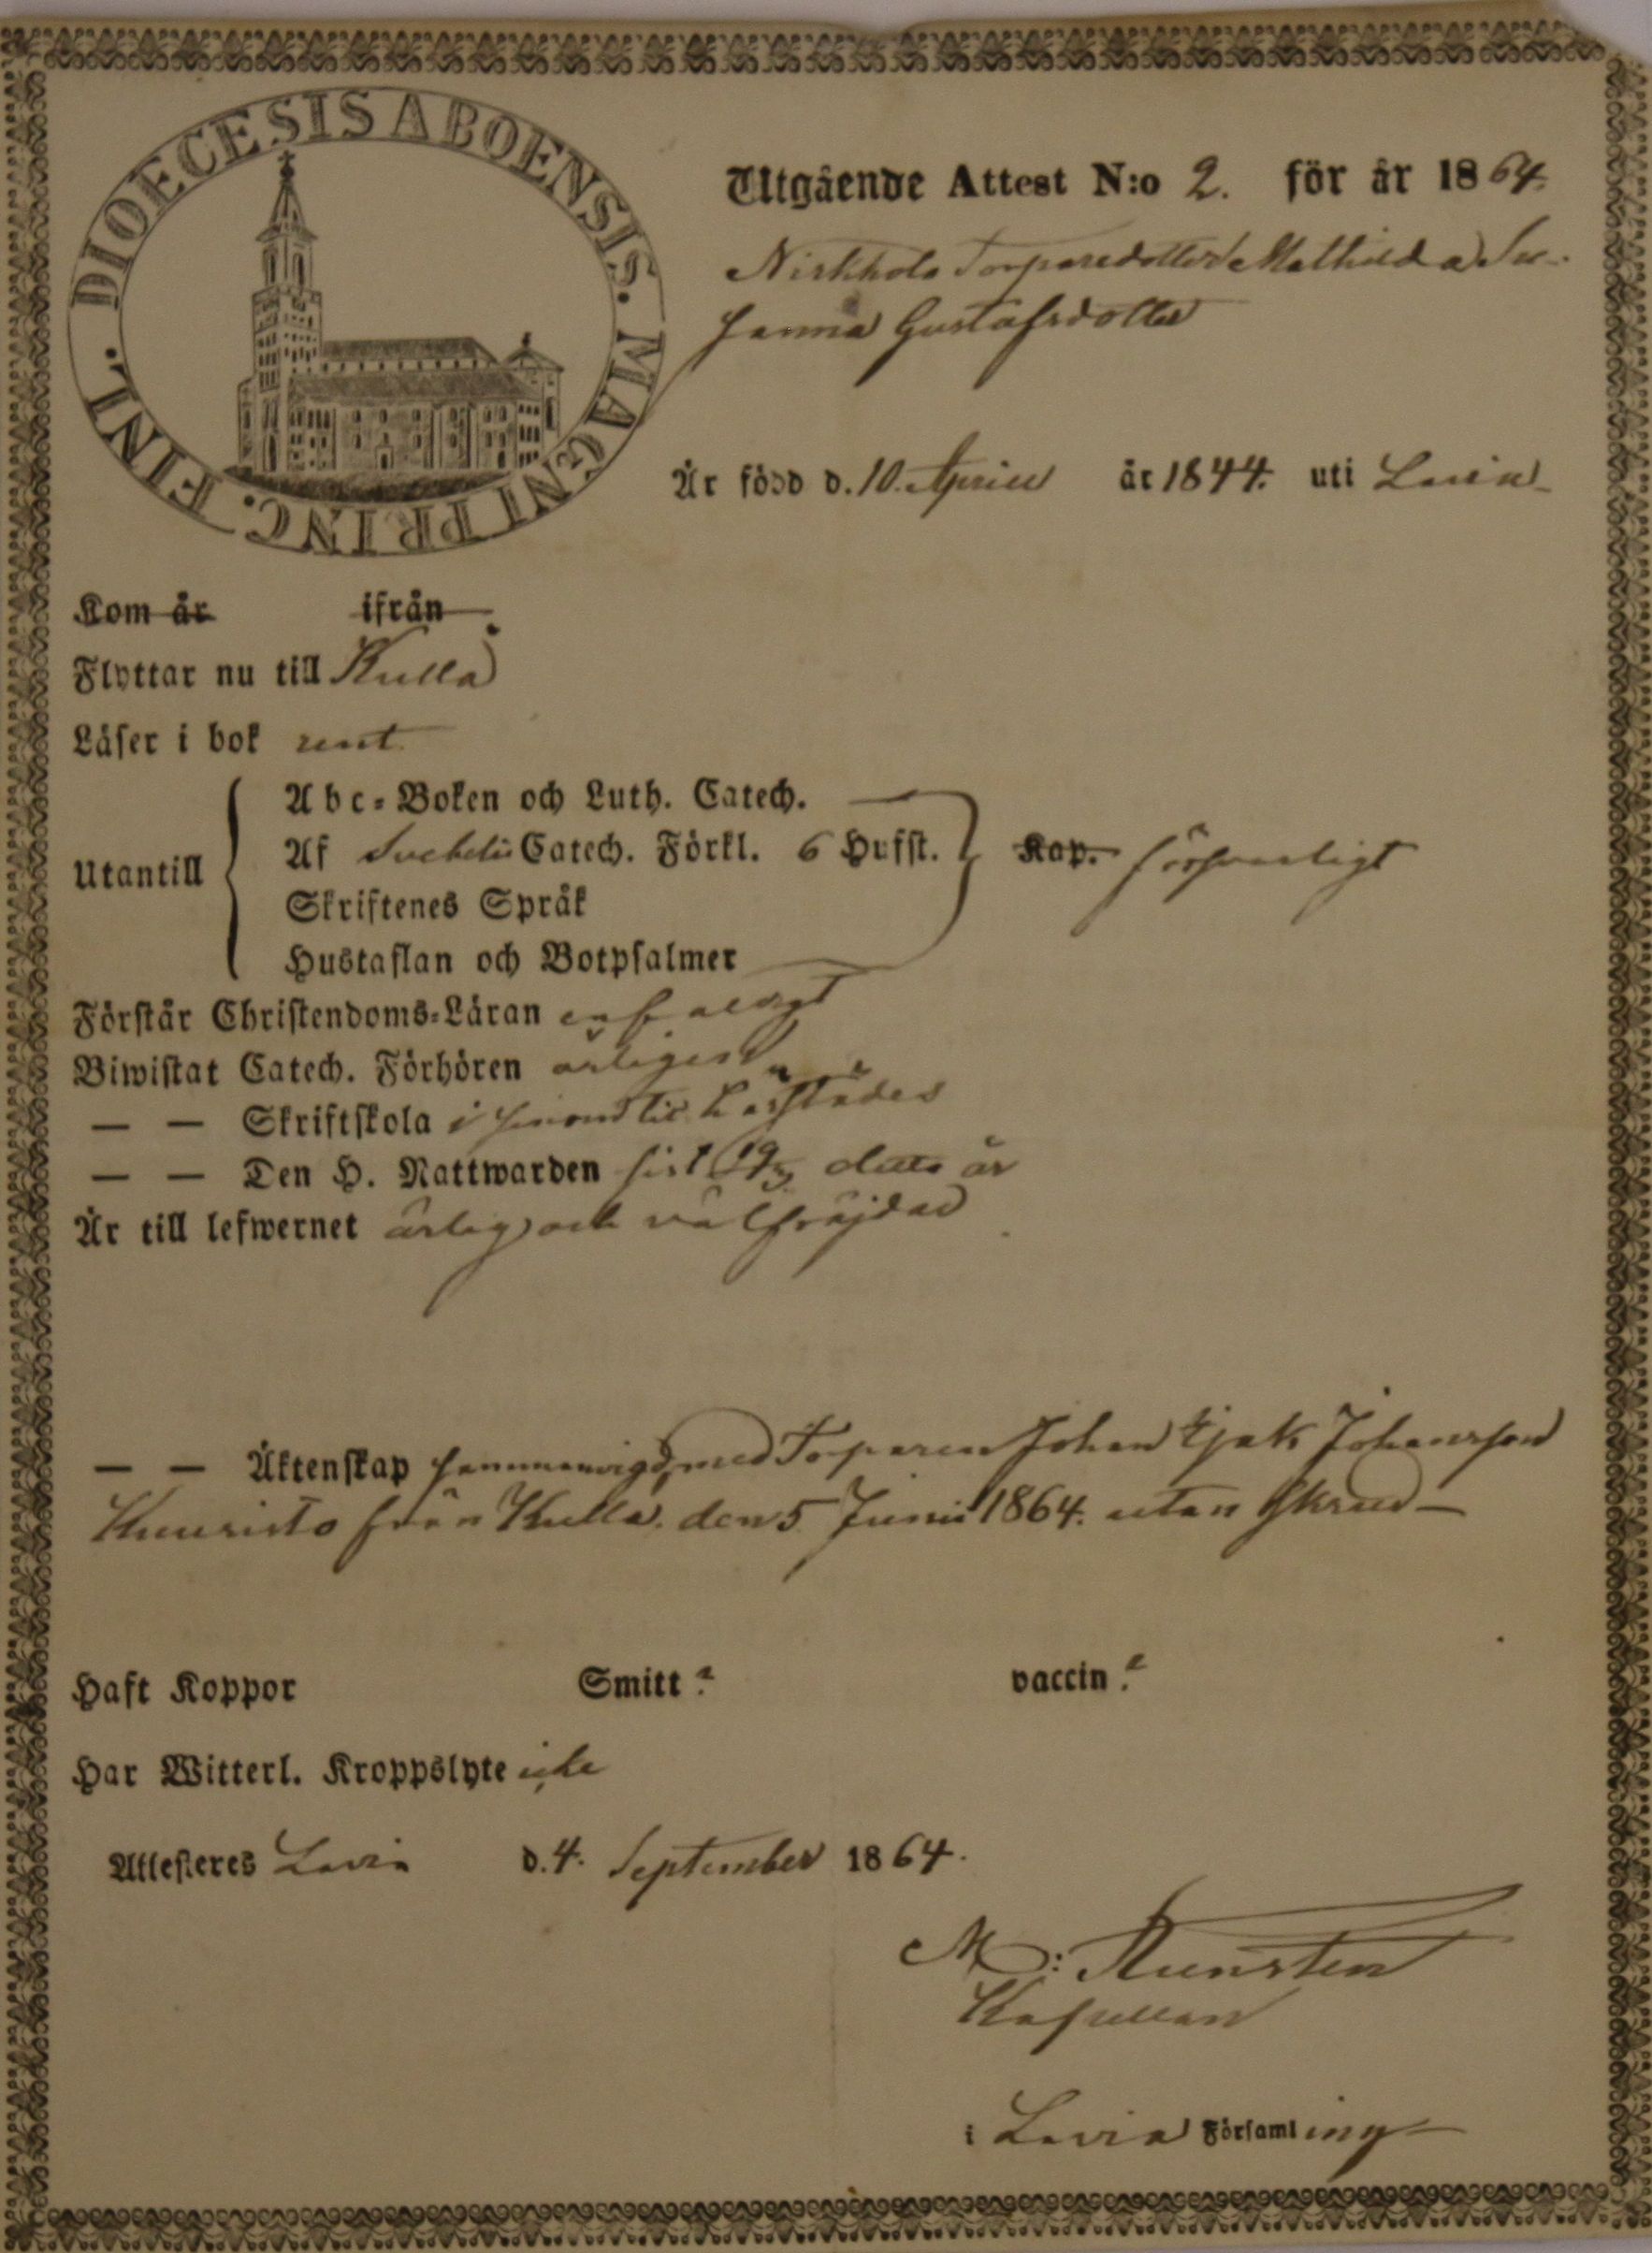 DIOECESIS ABOENSIS. MAGNI PRINC. FINL.
Utgående Attest N:o 2. för år 1864.
Torparedotter Mathilda Su-
sanna Gustafsdotter
Är född d. 10. April år 1844. uti Lavia
Kom år ifrån
Flyttar nu till Kulla
Läser i bok rent
Utantill
Abc-Boken och Luth. Catech.
Af Svebelii Catech. Förkl. 6 Hufst. Kap. försvarligt
Skriftenes Språk
Hustaflan och Botpsalmer
Förstår Christendoms-Läran enfaldigt
Biwistat Catech. Förhören årligen
— — Skriftskola i härstädes
— — Den H. Nattwarden sist detta år
Är till lefwernet ärlig och välfräjdad
— — Äktenskap sammanvigd med Torparen Johan Johansson
Kuuristo från Kulla den 5 Junii 1864. utan Skrud
Haft Koppor Smitt? vaccin.?
Har Witterl. Kroppslyte icke
Attesteres Lavia d. 4. September 1864.
M:
Kapellan
i Lavia Församling